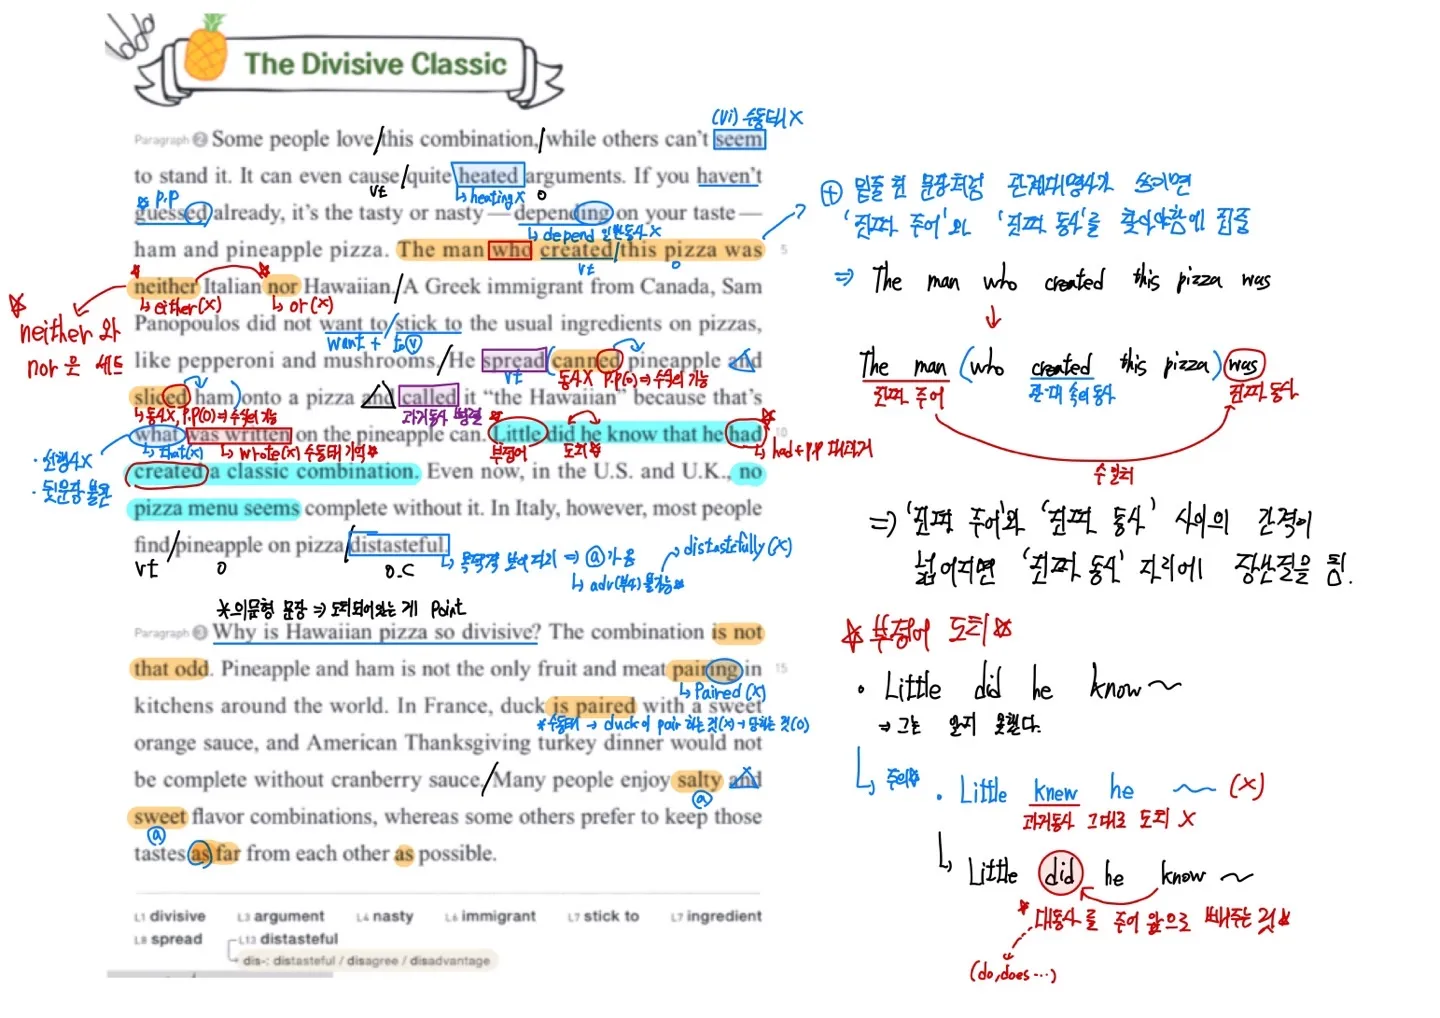 The Divisive Classic
(vi) 수동태 X
Paragraph 2 Some people love / this combination, / while others can't seem
to stand it. It can even cause / quite heated arguments. If you haven't
vt
↳ heating X
o
☆ P.P
guessed already, it's the tasty or nasty — depending on your taste —
↳ depend 일반동사 X
ham and pineapple pizza. The man who created / this pizza was 5
vt
o
neither Italian nor Hawaiian. / A Greek immigrant from Canada, Sam
↳ either(X)
↳ or(X)
☆ neither 와
nor 은 세트
Panopoulos did not want to / stick to the usual ingredients on pizzas,
want + to ⓥ
like pepperoni and mushrooms. / He spread (canned pineapple and
vt
동사X P.P(O) ⇒ 수식의 기능
sliced ham) onto a pizza and called it "the Hawaiian" because that's
↳ 동사X, P.P(O) ⇒ 수식의 기능
과거동사 병렬
what was written on the pineapple can. Little did he know that he had 10
↳ that(X)
↳ wrote(X) 수동태 기억★
부정어
도치★
↳ had + p.p 대과거
· 선행사X
· 뒷문장 불완
created a classic combination. Even now, in the U.S. and U.K., no
pizza menu seems complete without it. In Italy, however, most people
find / pineapple on pizza / distasteful.
vt
o
o.c
↳ 목적격 보어 자리 ⇒ ⓐ가능
→ distastefully (X)
↳ adv(부사) 불가능★
*의문형 문장 ⇒ 도치되어있는 게 Point
Paragraph 3 Why is Hawaiian pizza so divisive? The combination is not
that odd. Pineapple and ham is not the only fruit and meat pairing in 15
↳ Paired (X)
kitchens around the world. In France, duck is paired with a sweet
*수동태 → duck이 pair 하는 것(X) → 당하는 것(O)
orange sauce, and American Thanksgiving turkey dinner would not
be complete without cranberry sauce. / Many people enjoy salty and
ⓐ
sweet flavor combinations, whereas some others prefer to keep those
ⓐ
tastes as far from each other as possible.
L1 divisive L3 argument L4 nasty L6 immigrant L7 stick to L7 ingredient
L8 spread L13 distasteful
dis-: distasteful / disagree / disadvantage
⊕ 밑줄 친 문장처럼 관계대명사가 쓰이면
'진짜 주어'와 '진짜 동사'를 찾아야함에 집중
⇒ The man who created this pizza was
↓
The man (who created this pizza) was
진짜 주어
관·대 속의 동사
진짜 동사
수 일치
⇒ '진짜 주어'와 '진짜 동사' 사이의 간격이
넓어지면 '진짜 동사' 자리에 장난질을 침.
☆ 부정어 도치 ☆
· Little did he know ~
→ 그는 알지 못했다.
↳ 주의★
· Little knew he ~ (X)
과거동사 그대로 도치 X
↳ Little did he know ~
* 대동사를 주어 앞으로 빼주는 것★
(do, does ...)